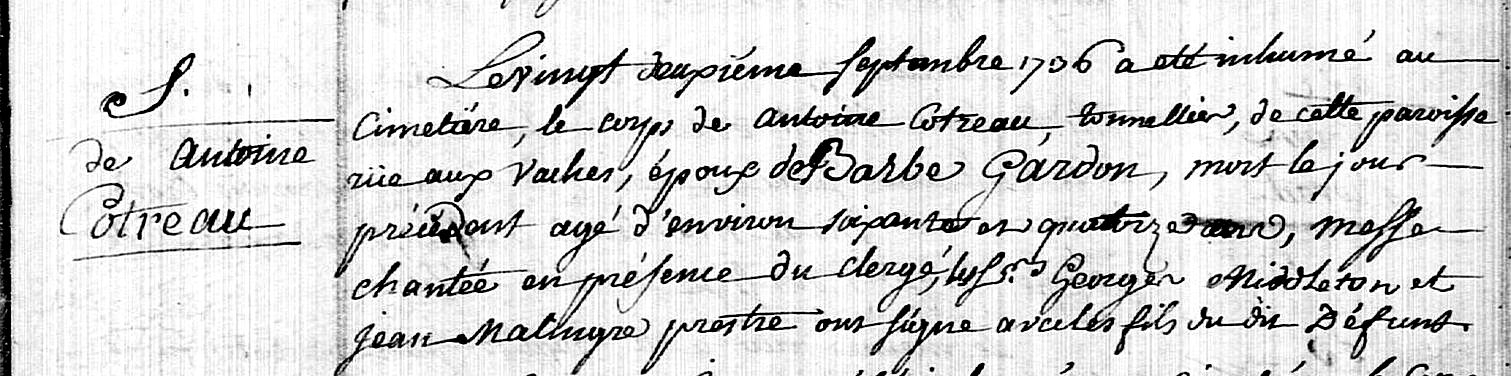 S.
de Antoine
Cotreau
Le vingt deuxiéme septembre 1736 a eté inhumé au
Cimetiére, le corps de Antoine Cotreau, tonnellier, de cette paroisse
rüe aux vaches, époux de Barbe Gardon, mort le jour
précédant agé d'environ soixante et quatorze ans, messe
chantée en présence du clergé, les Srs Georges Middleton et
jean Malingre prestre ont signe avec les fils du dit Défunt